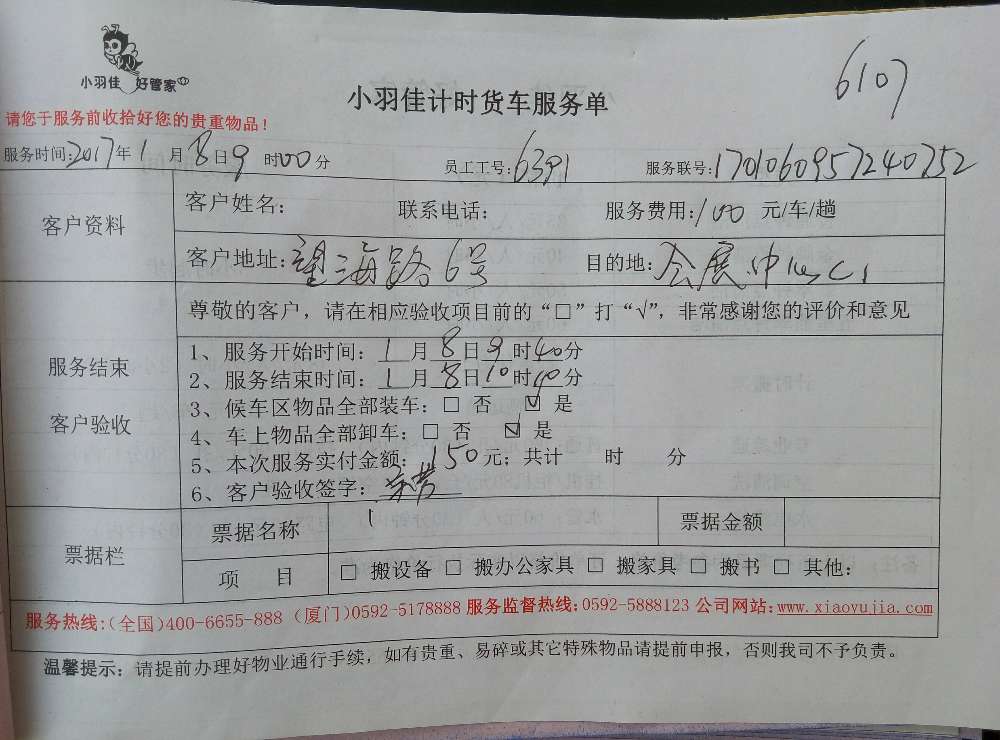 小羽佳 好管家
小羽佳计时货车服务单
6107
请您于服务前收拾好您的贵重物品！
服务时间：2017年1月8日9时00分 员工工号：6391 服务联号：1701060957240752
客户资料
客户姓名： 联系电话： 服务费用：100元/车/趟
客户地址：望海路6号 目的地：会展中心C1
服务结束
客户验收
尊敬的客户，请在相应验收项目前的“□”打“√”，非常感谢您的评价和意见
1、服务开始时间：1月8日9时40分
2、服务结束时间：1月8日10时40分
3、候车区物品全部装车：□ 否 ☑ 是
4、车上物品全部卸车：□ 否 ☑ 是
5、本次服务实付金额：150元；共计 时 分
6、客户验收签字：
票据栏
票据名称 票据金额
项 目 □ 搬设备 □ 搬办公家具 □ 搬家具 □ 搬书 □ 其他：
服务热线：（全国）400-6655-888（厦门）0592-5178888 服务监督热线：0592-5888123 公司网站：www.xiaoyujia.com
温馨提示：请提前办理好物业通行手续，如有贵重、易碎或其它特殊物品请提前申报，否则我司不予负责。